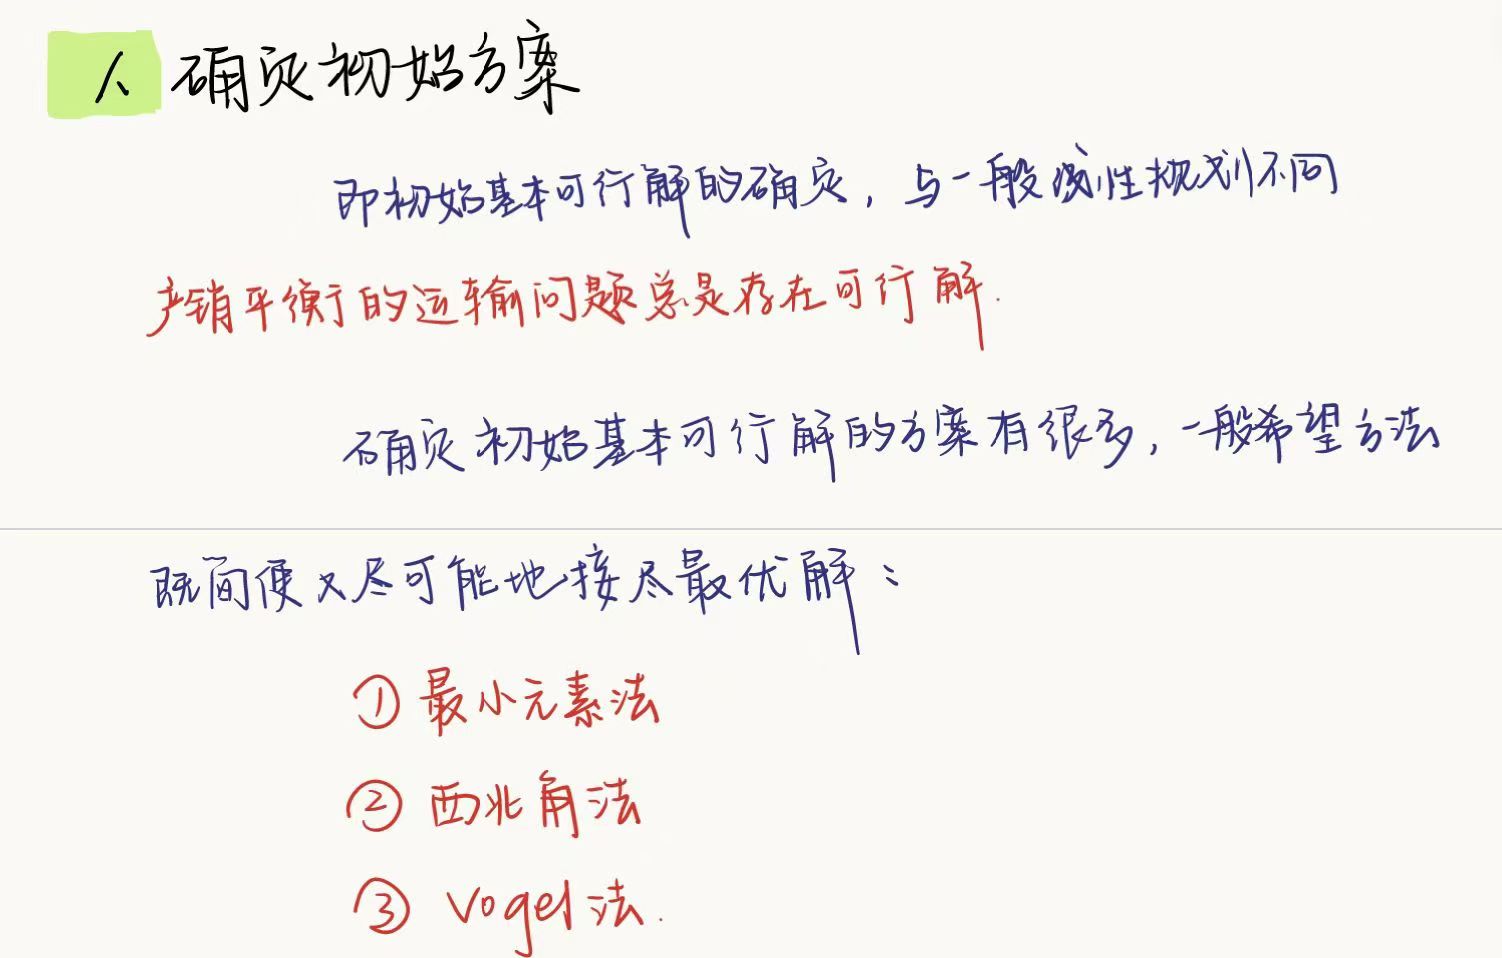 1、确定初始方案
即初始基本可行解的确定，与一般线性规划不同
产销平衡的运输问题总是存在可行解.
确定初始基本可行解的方案有很多，一般希望方法
既简便又尽可能地接尽最优解：
①最小元素法
②西北角法
③Vogel法.